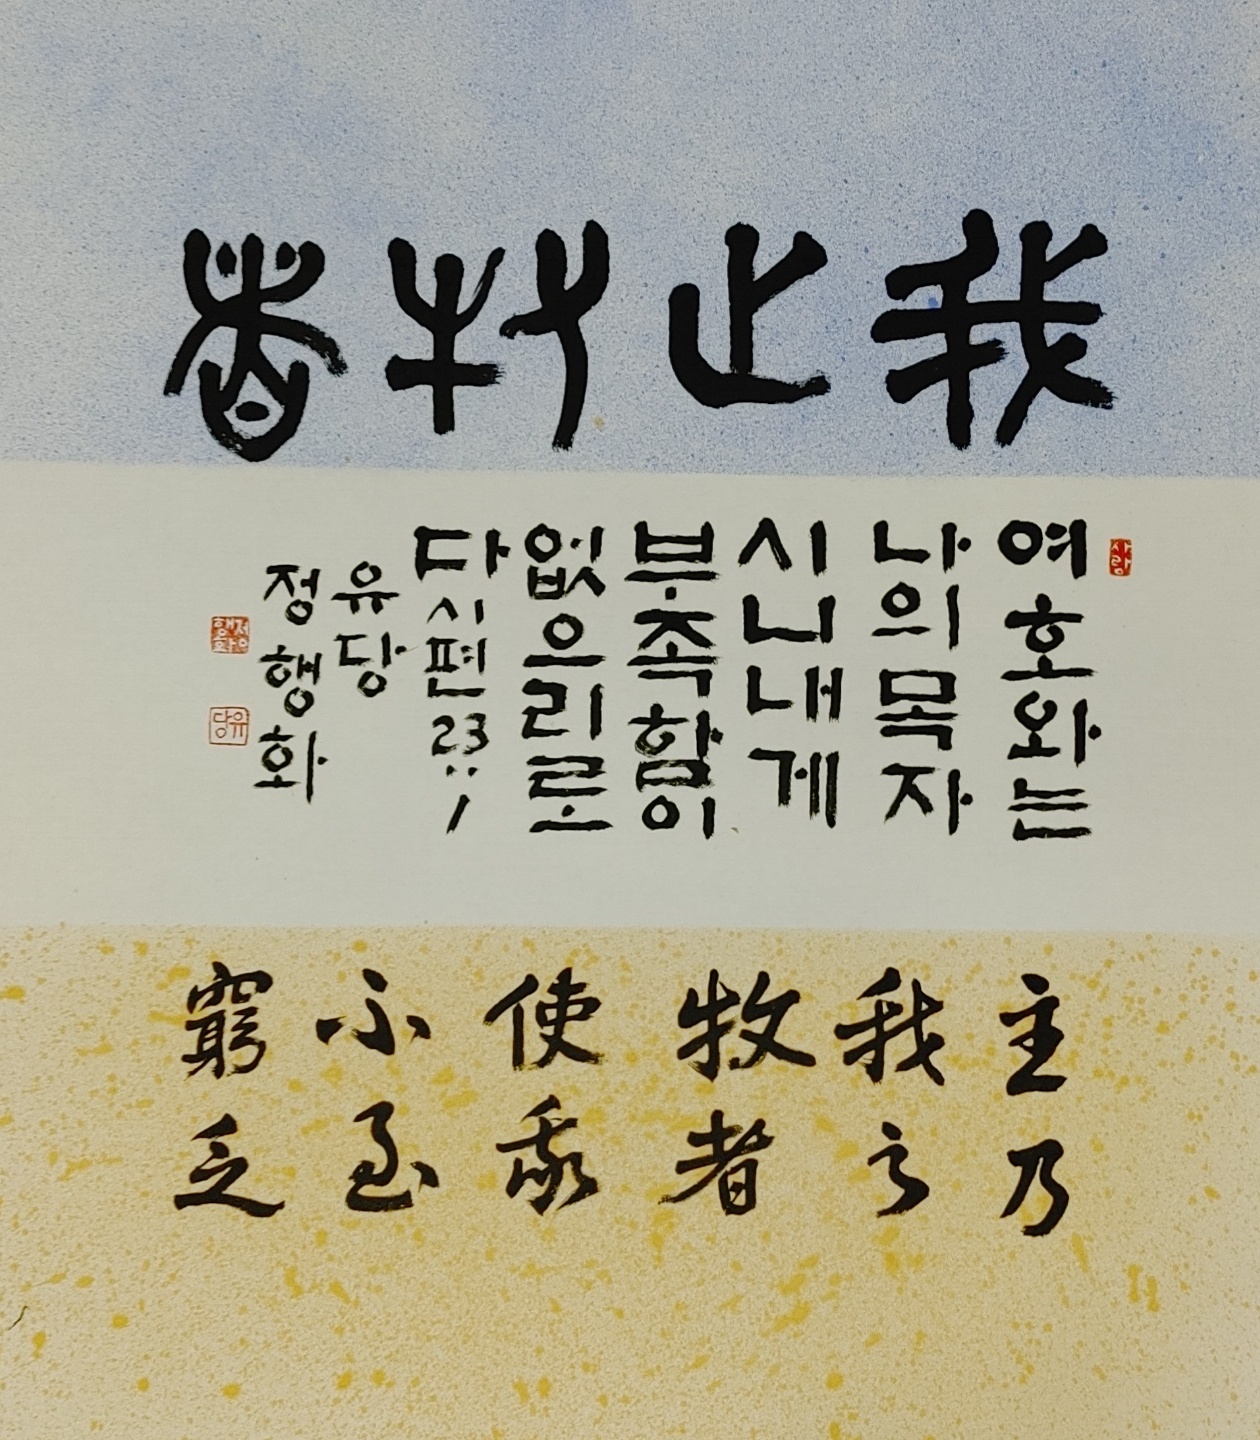 我之牧者
사랑
여호와는
나의목자
시니내게
부족함이
없으리로
다 시편 23:1
유당
정행화
정행화
유당
主乃
我之
牧者
使我
不至
窮乏